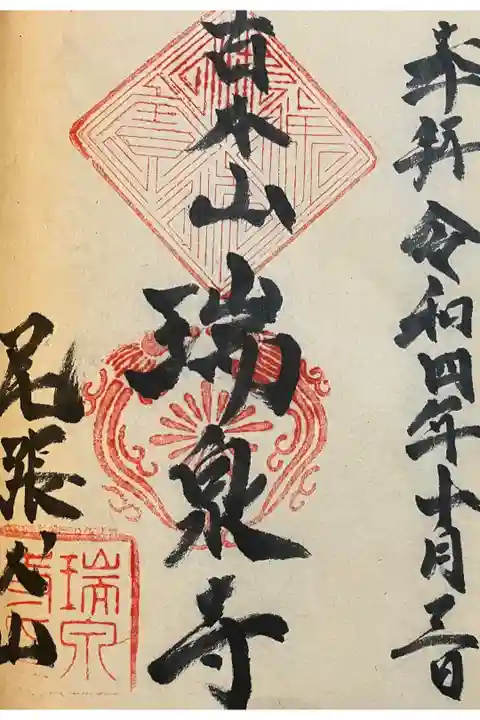 奉拝 令和四年十月三日
山
瑞泉寺
尾張犬山
瑞泉